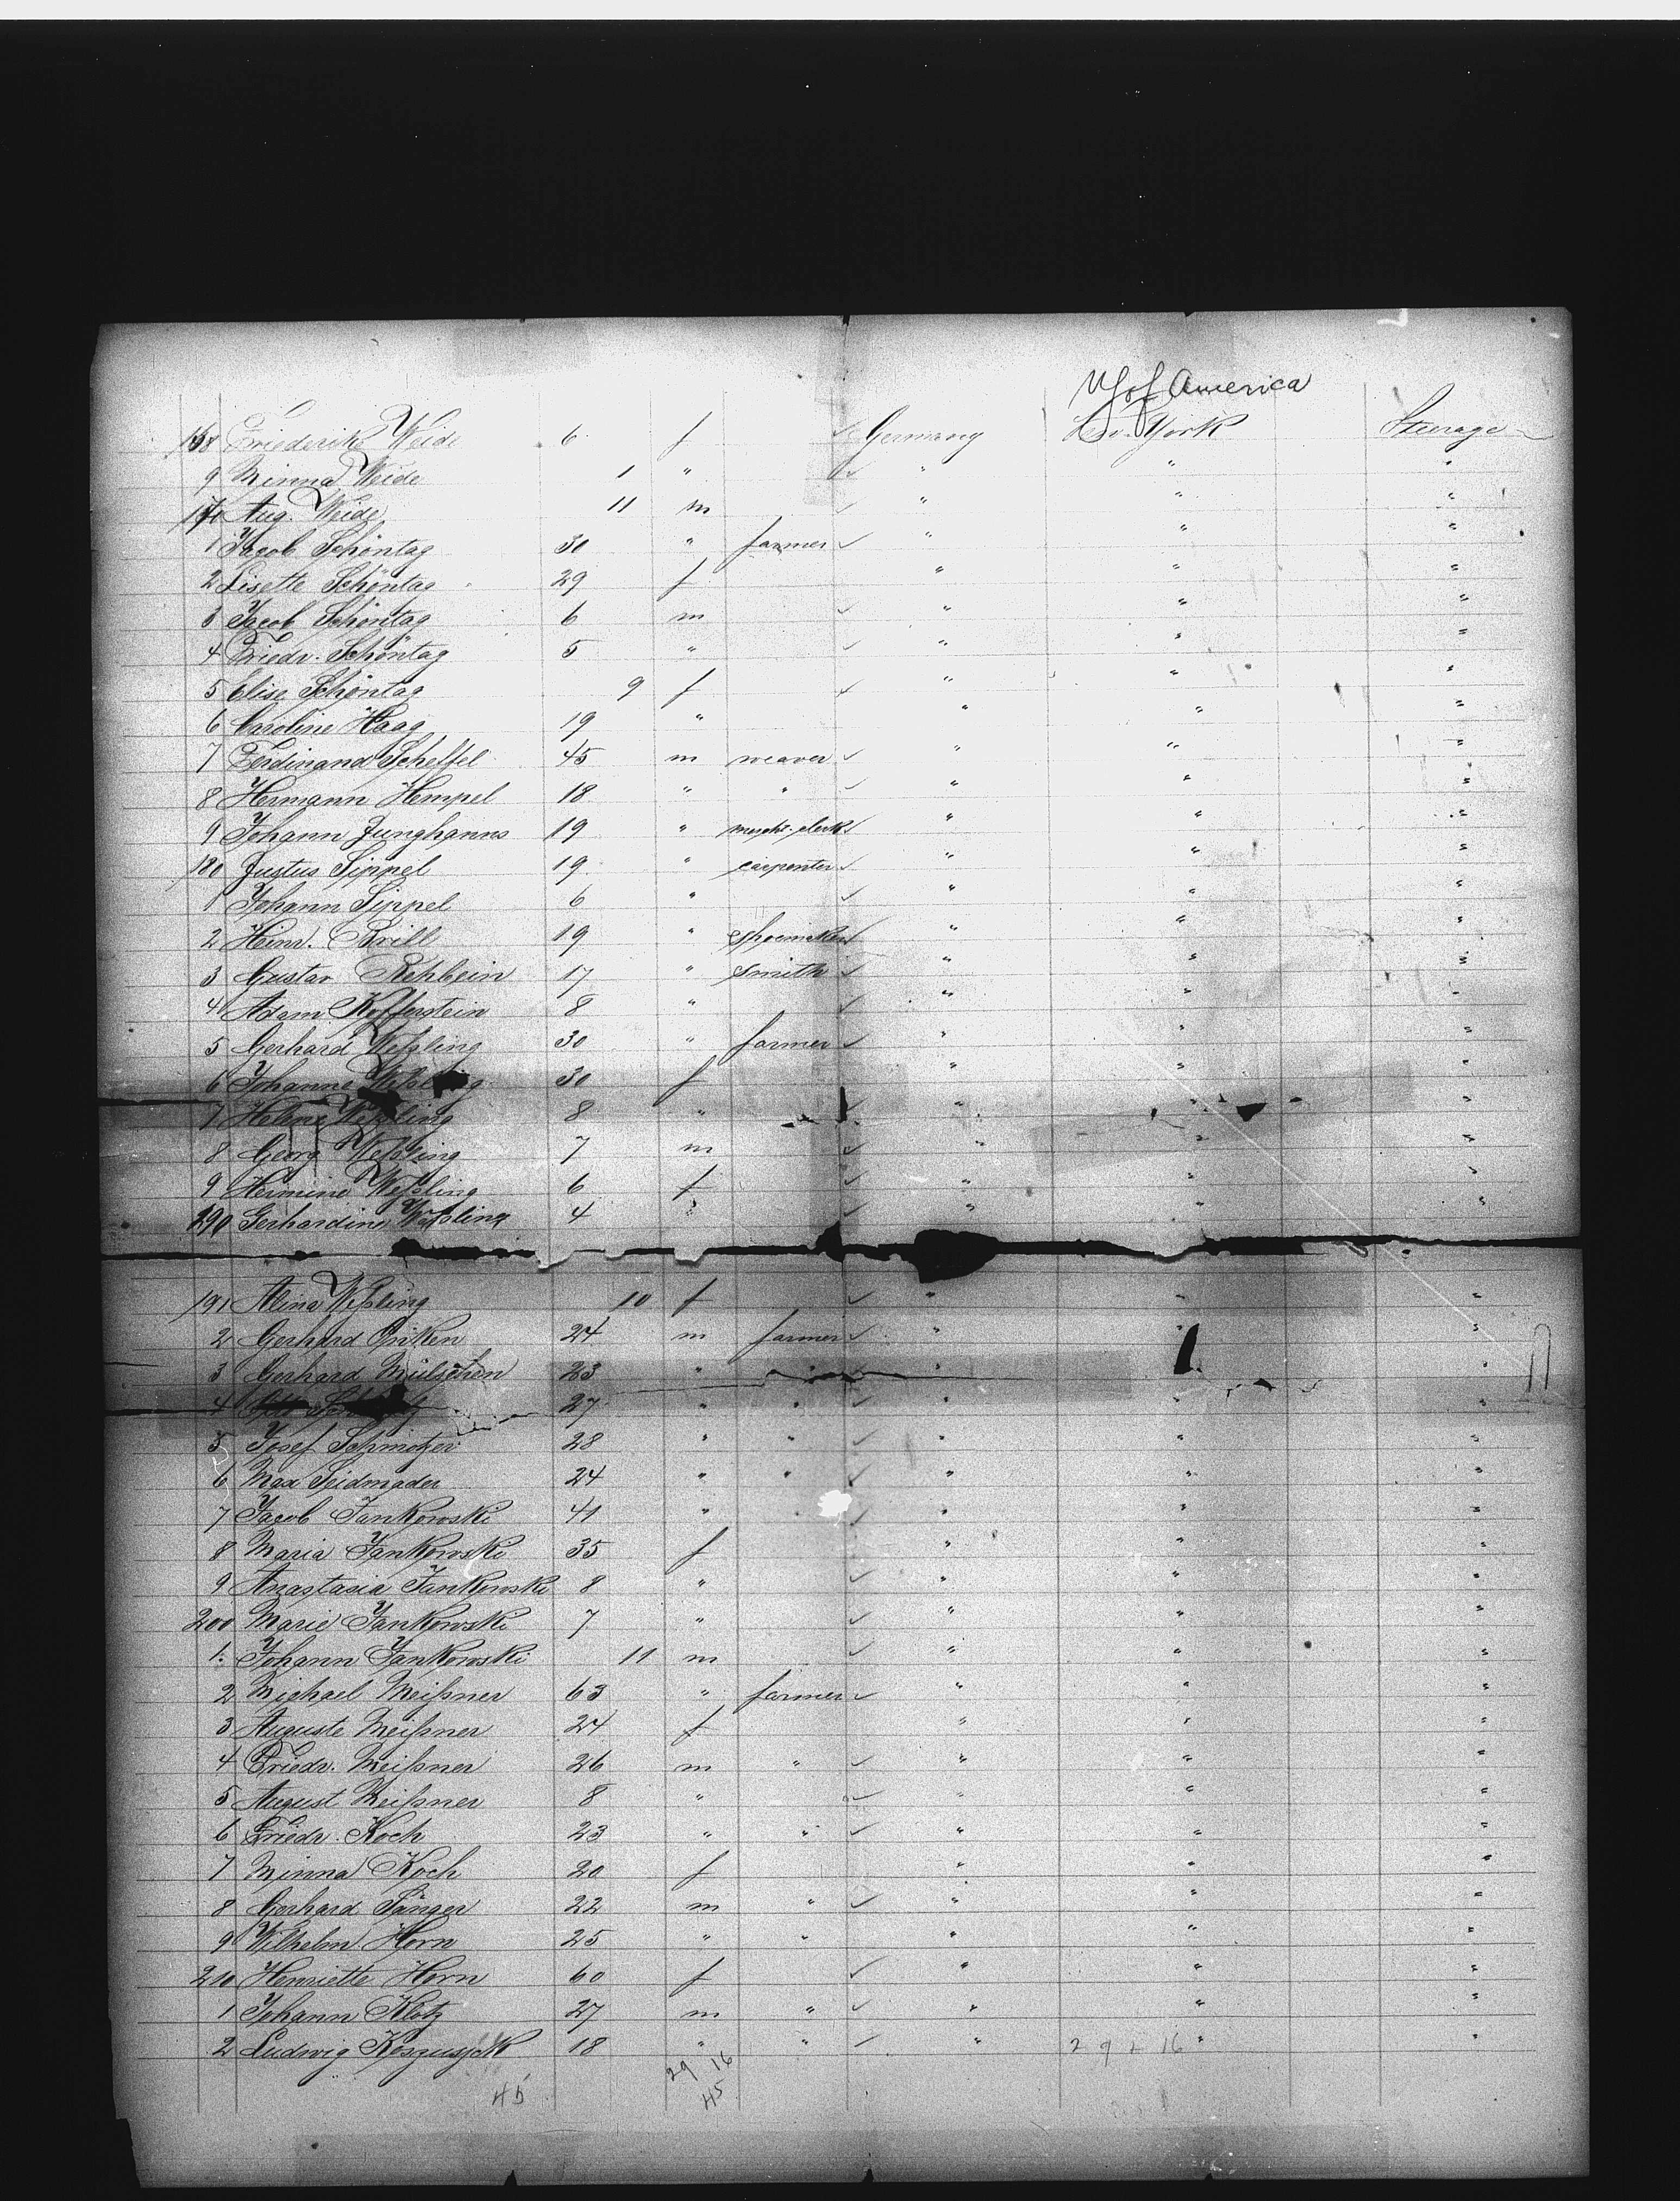 US of America
168 Friederike Weide 6 f ✓ Germany New-York Steerage
9 Minna Weide 1 " ✓ " " "
170 Aug. Weide 11 m ✓ " " "
1 Jacob Schöntag 30 " farmer ✓ " " "
2 Lisette Schöntag 29 f " " "
3 Jacob Schöntag 6 m ✓ " " "
4 Friedr. Schöntag 5 " ✓ " " "
5 Elise Schöntag 9 f ✓ " " "
6 Caroline Haag 19 " " " "
7 Ferdinand Scheffel 45 m weaver ✓ " " "
8 Hermann Hempel 18 " " ✓ " " "
9 Johann Junghanns 19 " mercht. clerk ✓ " " "
180 Justus Sippel 19 " carpenter ✓ " " "
1 Johann Sippel 6 " ✓ " " "
2 Heinr. Brill 19 " shoemaker ✓ " " "
3 Gustav Rehbein 17 " smith ✓ " " "
4 Adam Kofferstein 8 " ✓ " " "
5 Gerhard Weßling 30 " farmer ✓ " " "
6 Johanne 30 f " " "
7 Helene Weßling 8 " ✓ " " "
8 Georg Weßling 7 m ✓ " " "
9 Hermine Weßling 6 f ✓ " " "
190 Gerhardine Weßling 4 " ✓ " " "
191 Alina Weßling 10 f ✓ " " "
2 Gerhard 24 m farmer ✓ " " "
3 Gerhard 23 " " " " "
4 27 " " ✓ " " "
5 Josef Schmotzer 28 " " ✓ " " "
6 Max Seidmader 24 " " ✓ " " "
7 Jacob Jankowski 41 " " ✓ " " "
8 Maria Jankowski 35 f " " "
9 Anastasia Jankowski 8 " ✓ " " "
200 Marie Jankowski 7 " ✓ " " "
1 Johann Jankowski 11 m ✓ " " "
2 Michael Meißner 63 " farmer ✓ " " "
3 Auguste Meißner 24 f " " "
4 Friedr. Meißner 26 m " ✓ " " "
5 August Meißner 8 " ✓ " " "
6 Friedr. Koch 23 " " ✓ " " "
7 Minna Koch 20 f " " "
8 Gerhard Sänger 22 m " ✓ " " "
9 Wilhelm Horn 25 " " " " "
210 Henriette Horn 60 f ✓ " " "
1 Johann Klotz 27 m " ✓ " " "
2 Ludwig 18 " " ✓ " 29 16 " "
29 16
45 45